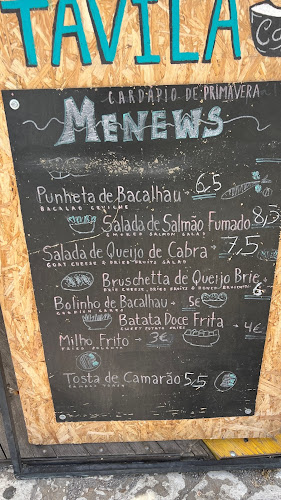 TAVILA
CARDÁPIO DE PRIMAVERA
MENEWS
Punheta de Bacalhau 6,5
BACALAO CEVICHE
Salada de Salmão Fumado 8,5
SMOKED SALMON SALAD
Salada de Queijo de Cabra 7,5
GOAT CHEESE & DRIED FRUITS SALAD
Bruschetta de Queijo Brie 6
BRIE CHEESE, DRIED FRUITS & HONEY
Bolinho de Bacalhau 5€
CODFISH CAKES
Batata Doce Frita 4€
SWEET POTATO FRIES
Milho Frito 3€
FRIED POLENTA
Tosta de Camarão 5,5